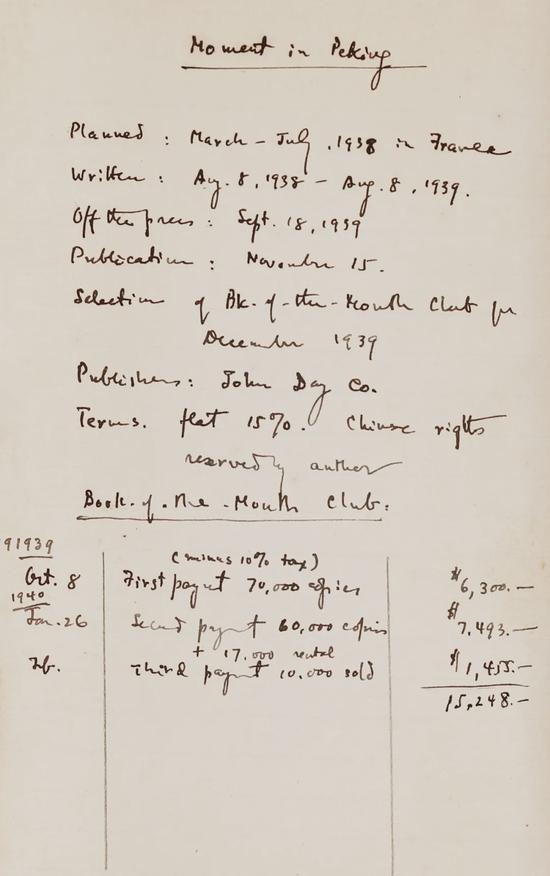 Moment in Peking
Planned : March - July, 1938 in France
Written : Aug. 8, 1938 - Aug. 8, 1939.
Off the press : Sept. 18, 1939
Publication : November 15.
Selection of Bk.-of-the-Month Club for
December 1939
Publishers: John Day Co.
Terms. flat 15%. Chinese rights
reserved by author
Book-of-the-Month Club:
1939
(minus 10% tax)
Oct. 8 First paymt 70,000 copies $6,300.—
1940
Jan. 26 Second paymt 60,000 copies $7,493.—
+ 17,000 rental
Feb. Third paymt 10,000 sold $1,455.—
15,248.—